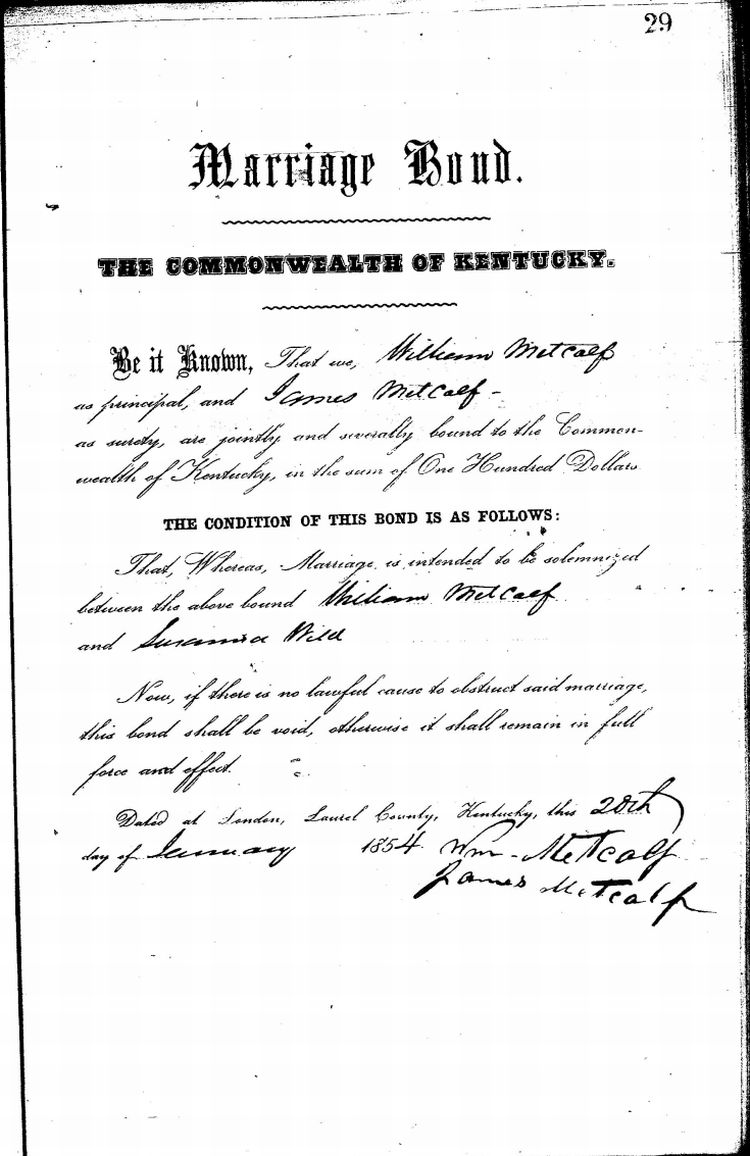 29
Marriage Bond.
THE COMMONWEALTH OF KENTUCKY.
Be it Known, That we, William Metcalf
as principal, and James Metcalf -
as surety, are jointly and severally bound to the Common-
wealth of Kentucky, in the sum of One Hundred Dollars.
THE CONDITION OF THIS BOND IS AS FOLLOWS:
That, Whereas, Marriage is intended to be solemnized
between the above bound William Metcalf
and Susanna
Now, if there is no lawful cause to obstruct said marriage,
this bond shall be void, otherwise it shall remain in full
force and effect.
Dated at London, Laurel County, Kentucky, this
day of January 1854 Wm - Metcalf
James Metcalf